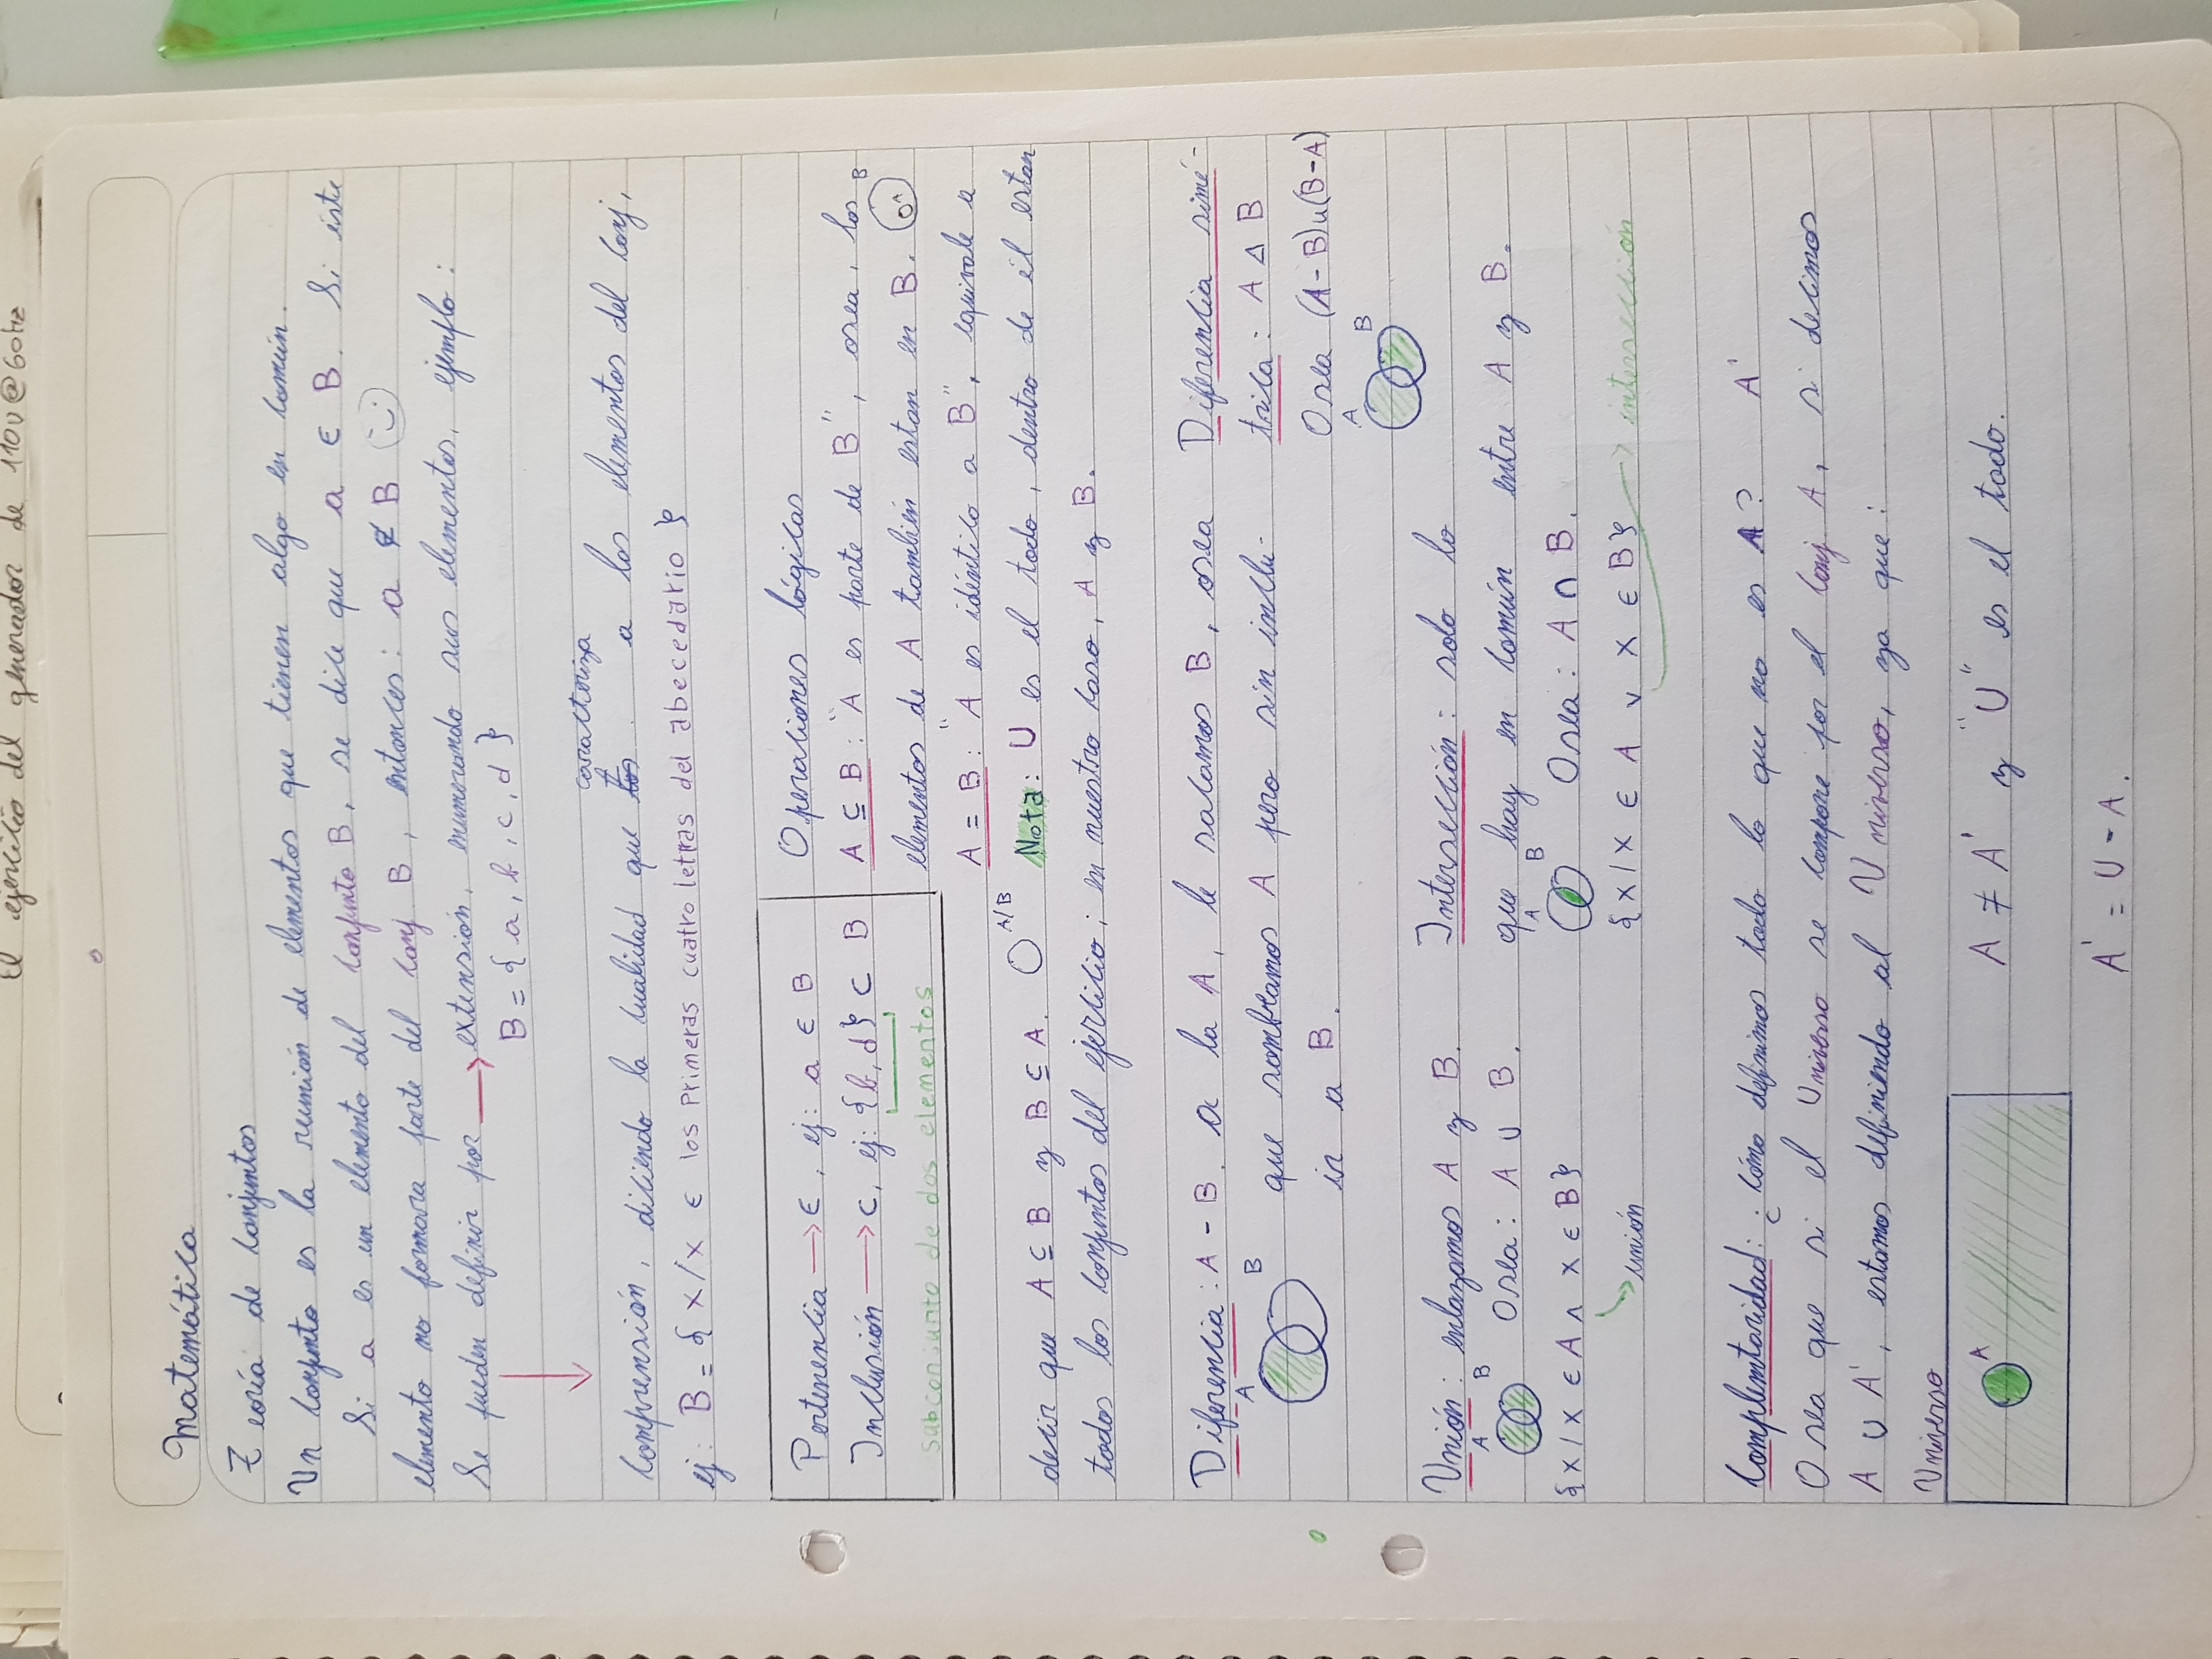 El ejercicio del generador de 110V@60Hz
Matemática
Teoría de conjuntos
Un conjunto es la reunión de elementos que tienen algo en común.
Si a es un elemento del conjunto B, se dice que a ∈ B. Si éste
elemento no formara parte del conj B, entonces: a ∉ B
Se pueden definir por → extensión, enumerando sus elementos, ejemplo:
B = { a, b, c, d }
caracteriza
Comprensión, diciendo la cualidad que a los elementos del conj,
ej: B = { x/x ∈ los Primeras cuatro letras del abecedario }
Pertenencia → ∈, ej: a ∈ B
Inclusión → ⊂, ej: {b, d} ⊂ B
subconjunto de dos elementos
Operaciones lógicas
A ⊆ B: "A es parte de B", osea, los
elementos de A también estan en B.
B
A
A = B: "A es idéntico a B", equivale a
decir que A ⊆ B y B ⊆ A.
A/B
Nota: U es el todo, dentro de él estan
todos los conjuntos del ejercicio; en nuestro caso, A y B.
Diferencia: A - B. a la A, le sacamos B, osea
que sombreamos A pero sin inclu-
ir a B.
A B
Diferencia simé-
trica: A Δ B
Osea (A - B)∪(B-A)
A B
Unión: enlazamos A y B.
A B
Osea: A ∪ B.
{x/x ∈ A ∧ x ∈ B}
unión
Intersección: solo lo
que hay en común entre A y B.
A B
Osea: A ∩ B.
{x/x ∈ A ∨ x ∈ B} → intersección
Complemtaridad: ¿cómo definimos todo lo que no es A? A'
Osea que si el Universo se compone por el conj A, si decimos
A ∪ A', estamos definiendo al Universo, ya que:
Universo
A
A ≠ A' y "U" es el todo.
A' = U - A.